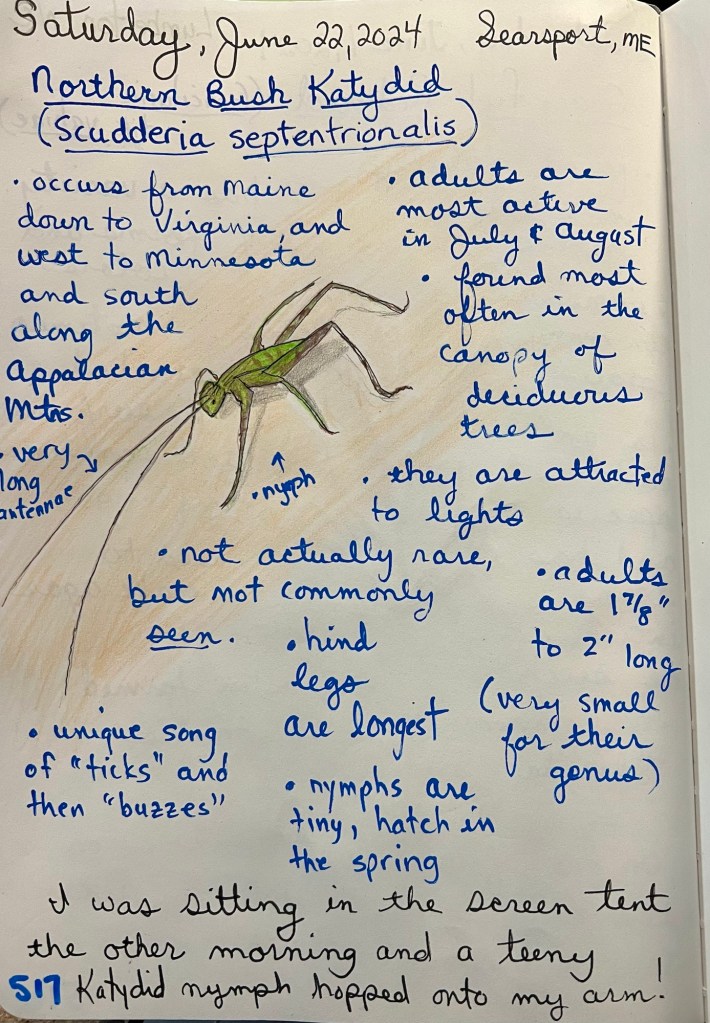 Saturday, June 22, 2024 Searsport, ME
Northern Bush Katydid
(Scudderia septentrionalis)
• occurs from Maine
down to Virginia, and
west to Minnesota
and south
along the
Appalacian
Mtns.
• very
long
antennae
• nymph
• adults are
most active
in July & August
• found most
often in the
canopy of
deciduous
trees
• they are attracted
to lights
• not actually rare,
but not commonly
seen.
• adults
are 1 7/8"
to 2" long
(very small
for their
genus)
• hind
legs
are longest
• unique song
of "ticks" and
then "buzzes"
• nymphs are
tiny, hatch in
the spring
I was sitting in the screen tent
the other morning and a teeny
517 Katydid nymph hopped onto my arm!